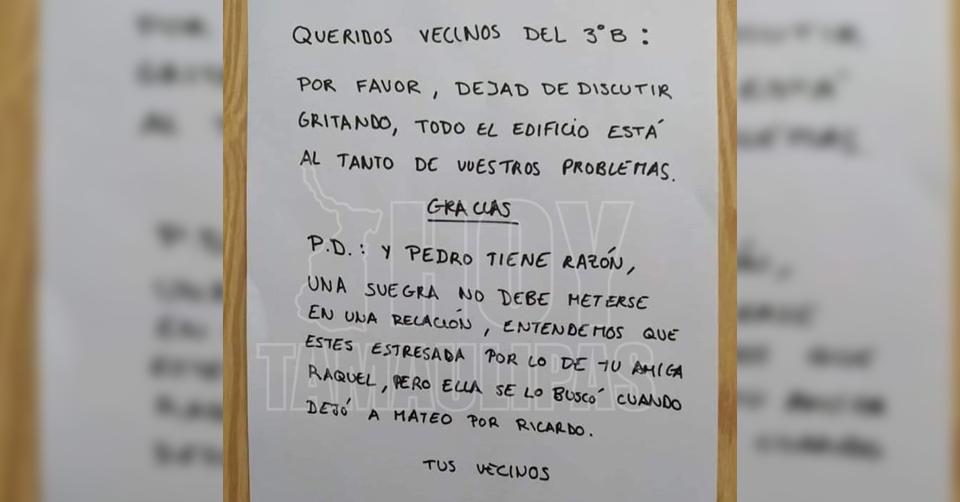 QUERIDOS VECINOS DEL 3ºB:
POR FAVOR, DEJAD DE DISCUTIR
GRITANDO, TODO EL EDIFICIO ESTÁ
AL TANTO DE VUESTROS PROBLEMAS.
GRACIAS
P.D.: Y PEDRO TIENE RAZÓN,
UNA SUEGRA NO DEBE METERSE
EN UNA RELACIÓN, ENTENDEMOS QUE
ESTES ESTRESADA POR LO DE TU AMIGA
RAQUEL, PERO ELLA SE LO BUSCÓ CUANDO
DEJÓ A MATEO POR RICARDO.
TUS VECINOS
HOY
TAMAULIPAS